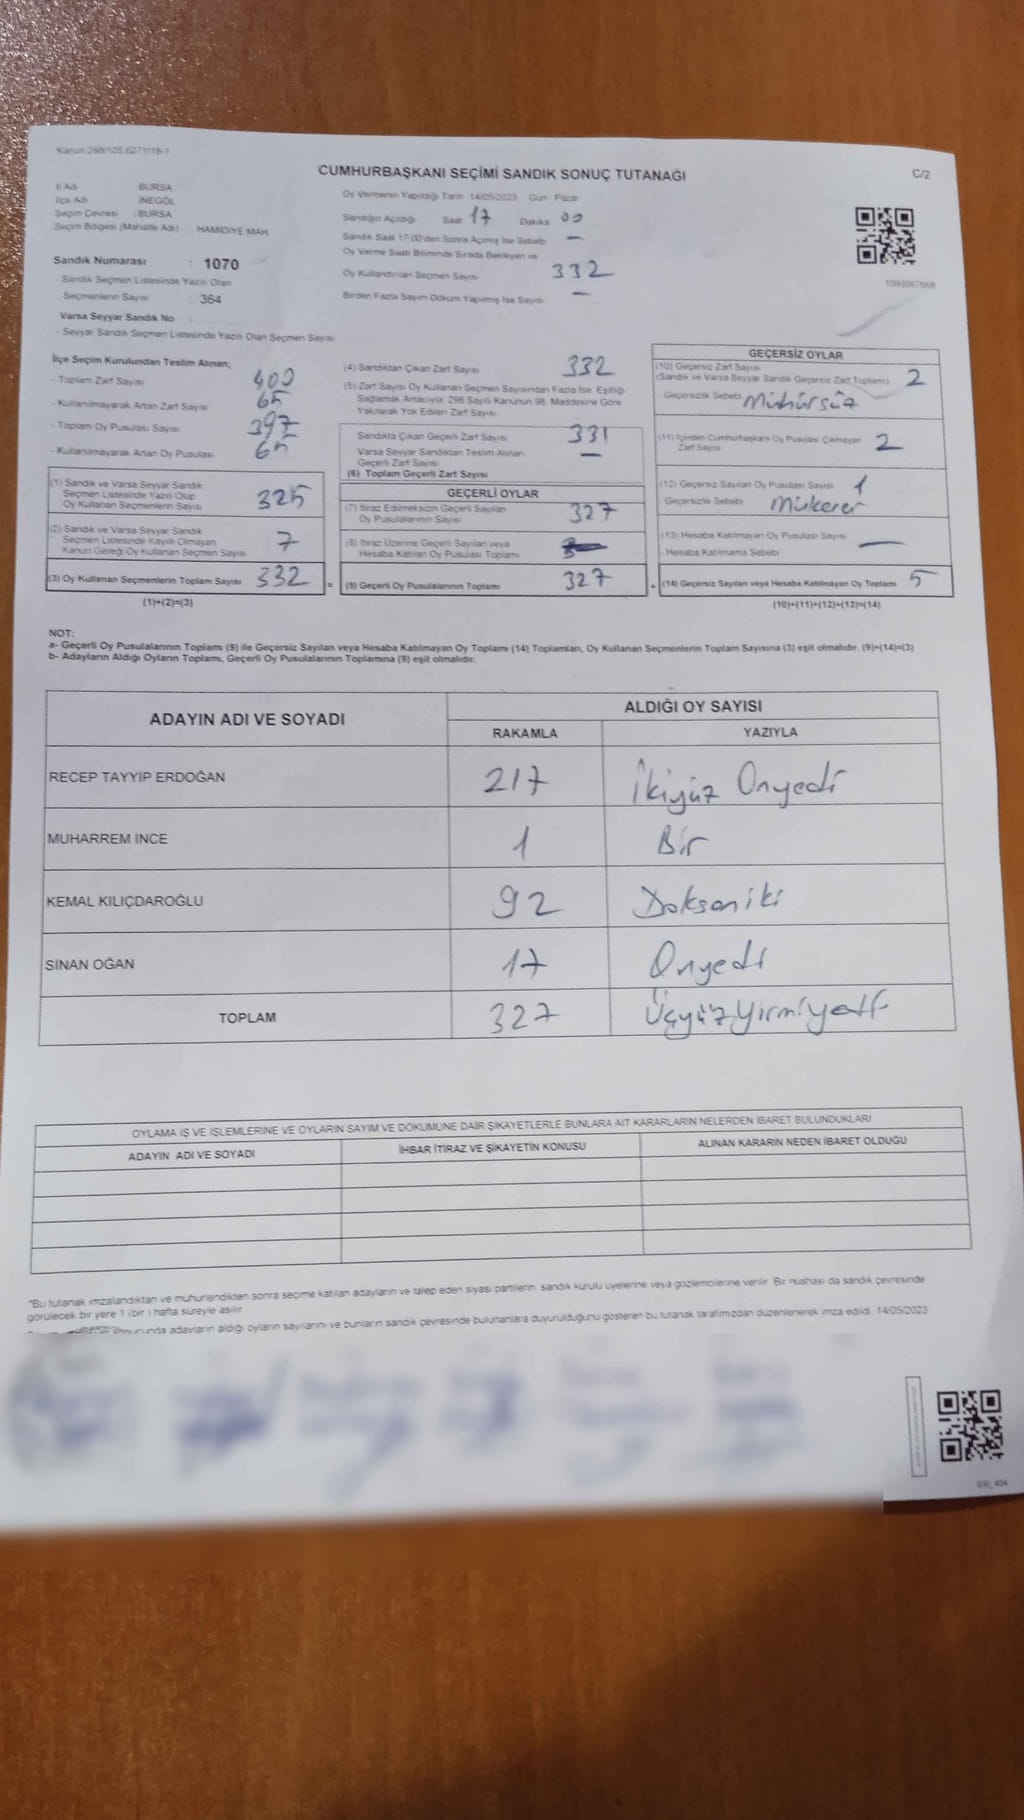 Kanun 298/105 6271/18-1
CUMHURBAŞKANI SEÇİMİ SANDIK SONUÇ TUTANAĞI
C/2
İl Adı BURSA
İlçe Adı İNEGÖL
Seçim Çevresi : BURSA
Seçim Bölgesi (Mahalle Adı) HAMİDİYE MAH
Sandık Numarası : 1070
- Sandık Seçmen Listesinde Yazılı Olan
Seçmenlerin Sayısı 364
Varsa Seyyar Sandık No
- Seyyar Sandık Seçmen Listesinde Yazılı Olan Seçmen Sayısı
Oy Vermenin Yapıldığı Tarih 14/05/2023 Gün Pazar
Sandığın Açıldığı Saat 17 Dakika 00
Sandık Saat 17:00'den Sonra Açımış İse Sebebi —
Oy Verme Saati Bitiminde Sırada Bekleyen ve
Oy Kullandırılan Seçmen Sayısı 332
Birden Fazla Sayım Döküm Yapılmış İse Sayısı —
İlçe Seçim Kurulundan Teslim Alınan;
- Toplam Zarf Sayısı 400
- Kullanılmayarak Artan Zarf Sayısı 65
- Toplam Oy Pusulası Sayısı 397
- Kullanılmayarak Artan Oy Pusulası 65
(1) Sandık ve Varsa Seyyar Sandık
Seçmen Listesinde Yazılı Olup
Oy Kullanan Seçmenlerin Sayısı 325
(2) Sandık ve Varsa Seyyar Sandık
Seçmen Listesinde Kayıtlı Olmayan
Kanun Gereği Oy Kullanan Seçmen Sayısı 7
(3) Oy Kullanan Seçmenlerin Toplam Sayısı 332 =
(1)+(2)=(3)
(4) Sandıktan Çıkan Zarf Sayısı 332
(5) Zarf Sayısı Oy Kullanan Seçmen Sayısından Fazla İse, Eşitliği
Sağlamak Amacıyla, 298 Sayılı Kanunun 98. Maddesine Göre
Yakılarak Yok Edilen Zarf Sayısı
Sandıkta Çıkan Geçerli Zarf Sayısı 331
Varsa Seyyar Sandıktan Teslim Alınan
Geçerli Zarf Sayısı —
(6) Toplam Geçerli Zarf Sayısı
GEÇERLİ OYLAR
(7) İtiraz Edilmeksizin Geçerli Sayılan
Oy Pusulalarının Sayısı 327
(8) İtiraz Üzerine Geçerli Sayılan veya
Hesaba Katılan Oy Pusulası Toplamı
(9) Geçerli Oy Pusulalarının Toplamı 327 +
GEÇERSİZ OYLAR
(10) Geçersiz Zarf Sayısı
(Sandık ve Varsa Seyyar Sandık Geçersiz Zarf Toplamı) 2
- Geçersizlik Sebebi Mühürsüz
(11) İçinden Cumhurbaşkanı Oy Pusulası Çıkmayan
Zarf Sayısı 2
(12) Geçersiz Sayılan Oy Pusulası Sayısı 1
Geçersizlik Sebebi Mükerer
(13) Hesaba Katılmayan Oy Pusulası Sayısı —
- Hesaba Katılmama Sebebi
(14) Geçersiz Sayılan veya Hesaba Katılmayan Oy Toplamı 5
(10)+(11)+(12)+(13)=(14)
NOT:
a- Geçerli Oy Pusulalarının Toplamı (9) ile Geçersiz Sayılan veya Hesaba Katılmayan Oy Toplamı (14) Toplamları, Oy Kullanan Seçmenlerin Toplam Sayısına (3) eşit olmalıdır. (9)+(14)=(3)
b- Adayların Aldığı Oyların Toplamı, Geçerli Oy Pusulalarının Toplamına (9) eşit olmalıdır.
ADAYIN ADI VE SOYADI
ALDIĞI OY SAYISI
RAKAMLA YAZIYLA
RECEP TAYYİP ERDOĞAN 217 İkiyüz Onyedi
MUHARREM İNCE 1 Bir
KEMAL KILIÇDAROĞLU 92 Doksaniki
SİNAN OĞAN 17 Onyedi
TOPLAM 327 Üçyüzyirmiyedi
OYLAMA İŞ VE İŞLEMLERİNE VE OYLARIN SAYIM VE DÖKÜMÜNE DAİR ŞİKAYETLERLE BUNLARA AİT KARARLARIN NELERDEN İBARET BULUNDUKLARI
ADAYIN ADI VE SOYADI İHBAR İTİRAZ VE ŞİKAYETİN KONUSU ALINAN KARARIN NEDEN İBARET OLDUĞU
"Bu tutanak imzalandıktan ve mühürlendikten sonra seçime katılan adayların ve talep eden siyasi partilerin sandık kurulu üyelerine veya gözlemcilerine verilir. Bir nüshası da sandık çevresinde
görülecek bir yere 1 (bir) hafta süreyle asılır.
adayların aldığı oyların sayılarını ve bunların sandık çevresinde bulunanlara duyurulduğunu gösteren bu tutanak tarafımızdan düzenlenerek imza edildi. 14/05/2023